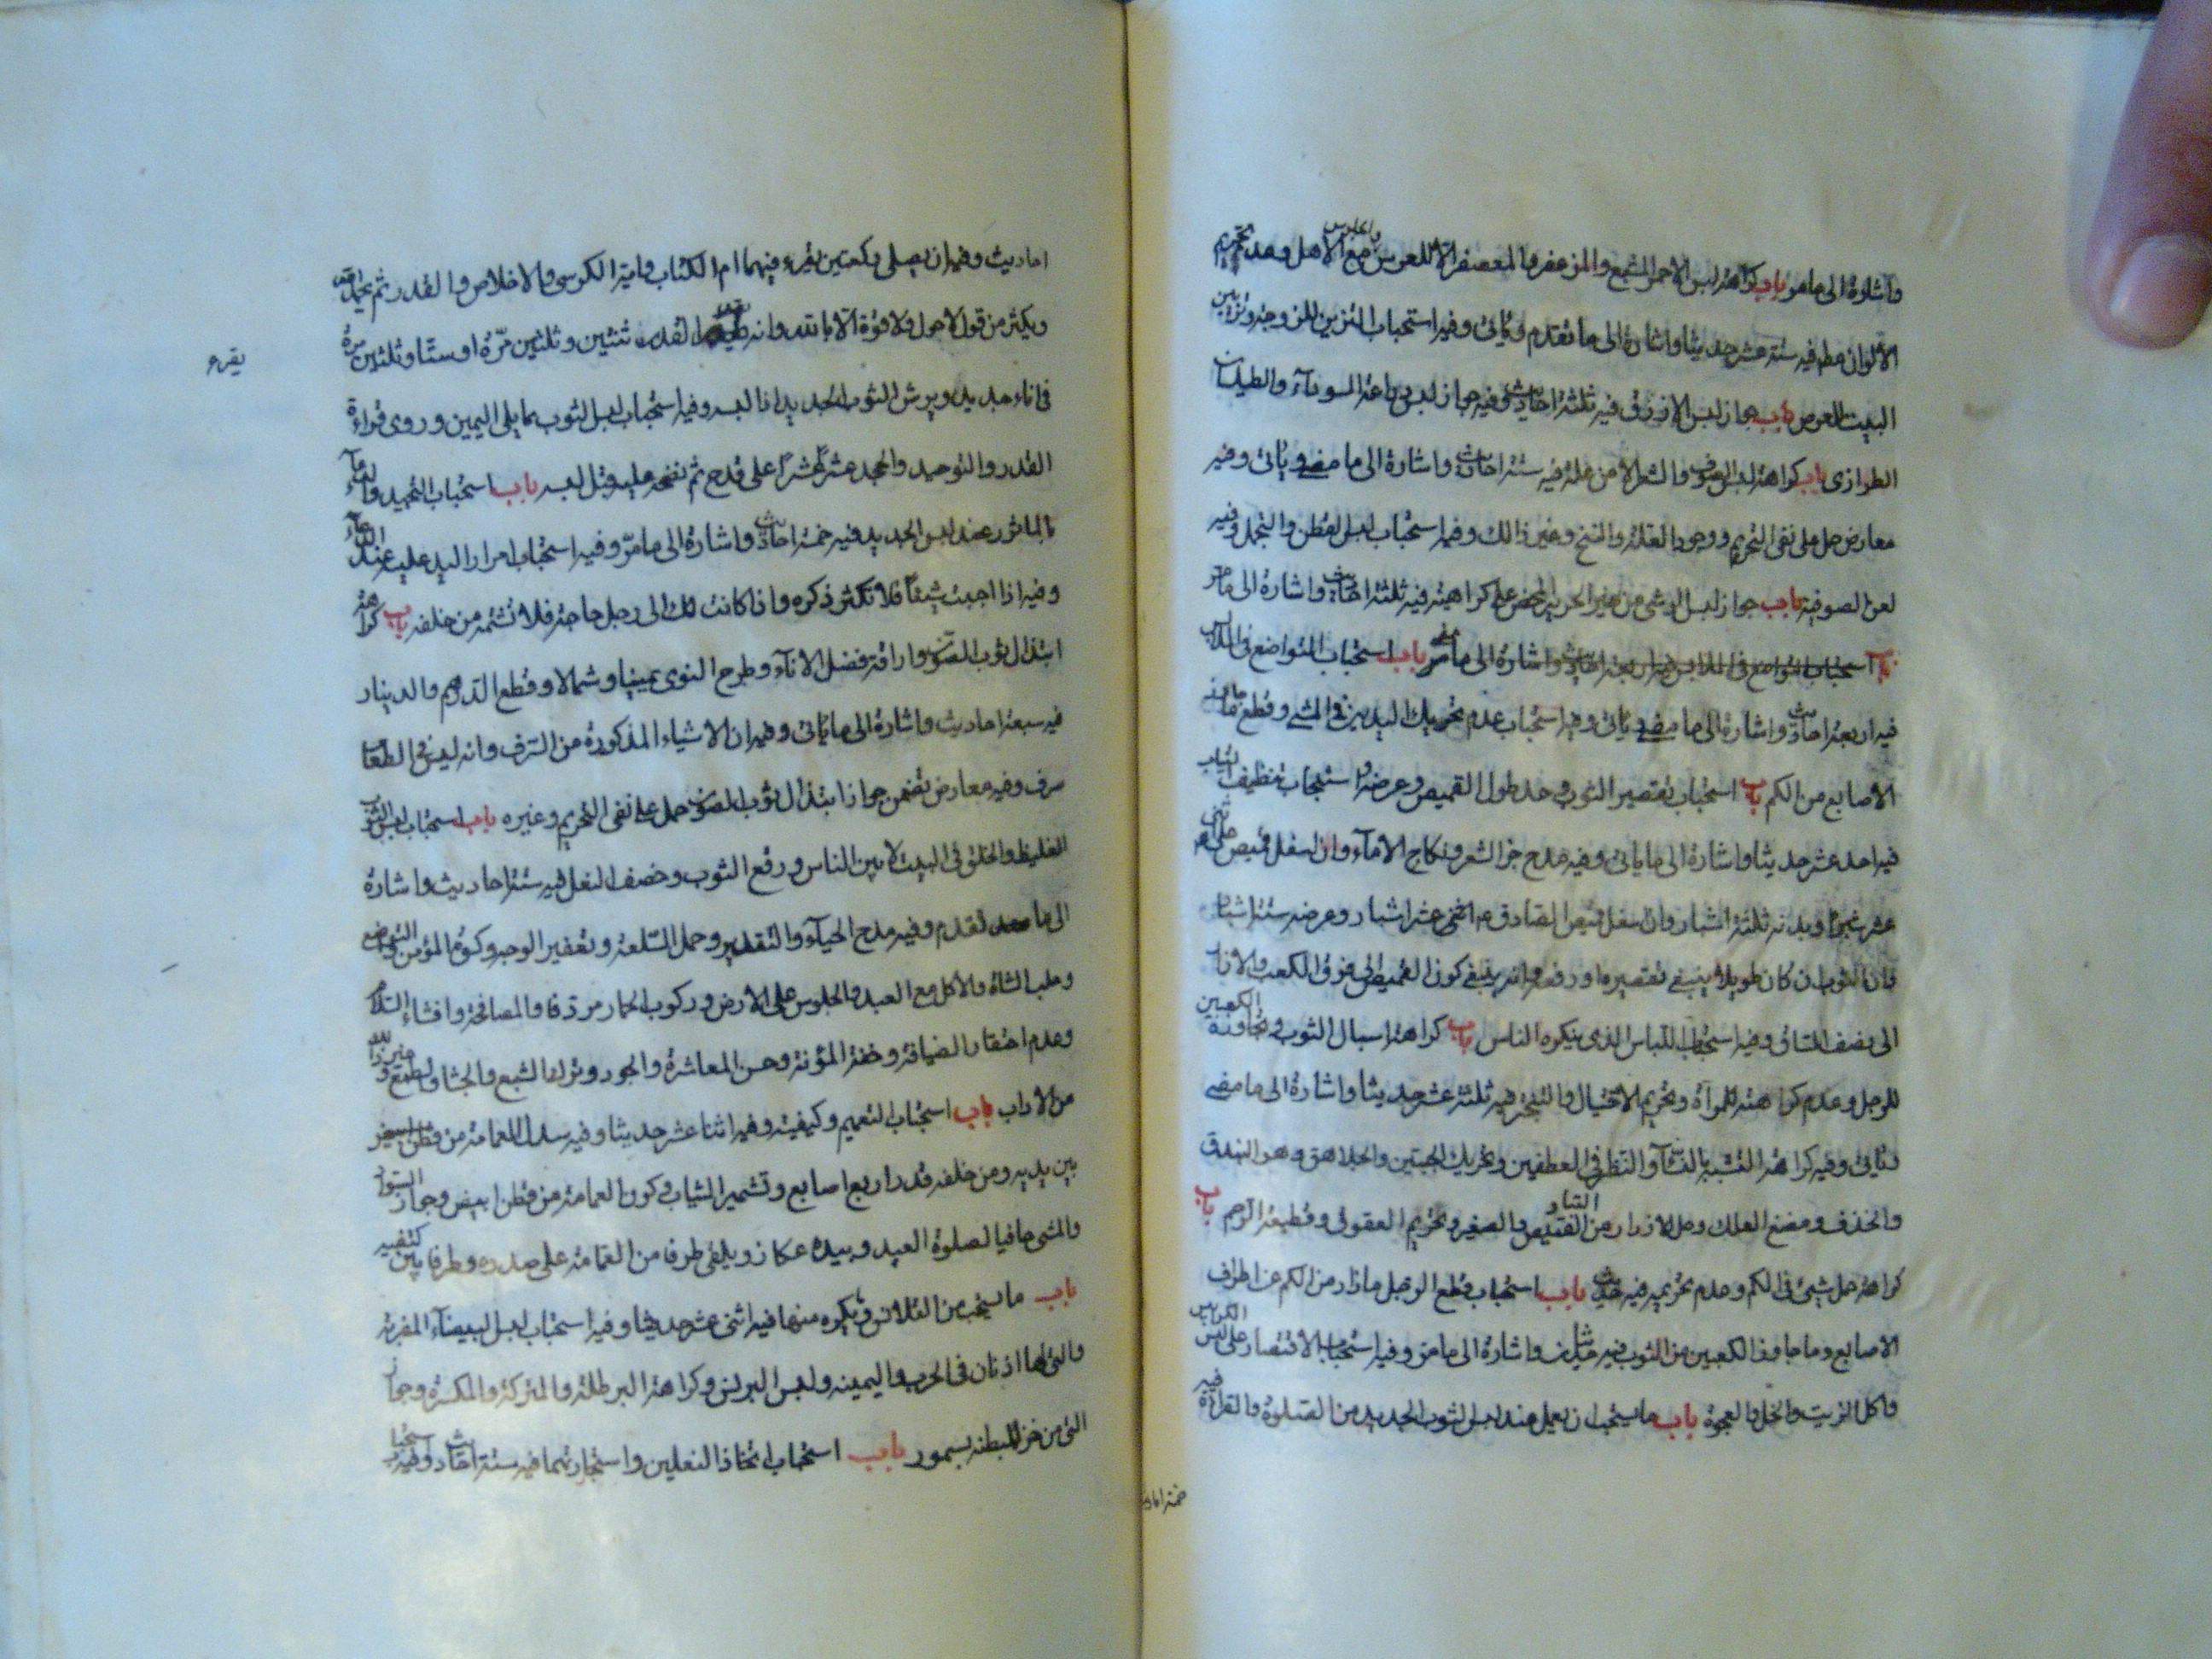 واشارة الى ما مر باب كراهة لبس الاحمر المشبع والمزعفر والمعصفر الا للعرس مع الاهل وعدم تحريم
الالوان مطلقا فيه ستة عشر حديثا واشارة الى ما تقدم وياتى وفيه استحباب التزين للزوجة وتزيين
البيت للعرس باب جواز لبس الازرق فيه ثلثة احاديث وفيه جواز لبس دراعة السودآء والطيلسان
الطرازى باب كراهة لبس الصوف والشعر الا من علة فيه ستة احاديث واشارة الى ما مضى وياتى وفيه
معارض حمل على نفى التحريم ووجود العلة والنسخ وغير ذالك وفيه استحباب لبس القطن والتجمل وفيه
لعن الصوفية باب جواز لبس الوشى من غير الحرير المحض على كراهية فيه ثلثة احاديث واشارة الى ما مر
باب استحباب التواضع فى الملابس فيه اربعة احاديث واشارة الى ما مر باب استحباب التواضع فى الملابس
فيه اربعة احاديث واشارة الى ما مضى وياتى وفيه استحباب عدم تحريك اليدين فى المشى وقطع ما زاد
الاصابع من الكم باب استحباب تقصير الثوب وحد طول القميص وعرضه واستحباب تنظيف الثياب
فيه احد عشر حديثا واشارة الى ما ياتى وفيه مدح جز الشعر ونكاح الامآء وان اسفل قميص على اثنى
عشر شبرا وبدنه ثلثة اشبار وان اسفل قميص الصادق ع اثنى عشر اشبار وعرضه ستة اشبار
وان الثوب ان كان طويلا ينبغى تقصيره او رفعه وانه ينبغى كون القميص الى فوق الكعب والازار
الى نصف الساق وفيه استحباب اللباس الذى ينكره الناس باب كراهة اسبال الثوب وتجاوزه الكعبين
للرجل وعدم كراهته للمرأة وتحريم الاختيال والتبختر فيه ثلثة عشر حديثا واشارة الى ما مضى
وياتى وفيه كراهة التشبه بالنسآء والنظر فى العطفين وتحريك الجنبين والجلاهق وهو البندق
والخذف ومضغ العلك وحل الازرار من القميص والصفير وتحريم العقوق وقطيعة الرحم باب
كراهة حمل شيئ فى الكم وعدم تحريمه فيه حديث باب استحباب قطع الرجل ما زاد من الكم عن اطراف
الاصابع وما جاوز الكعبين من الثوب فيه حديثان واشارة الى ما مر وفيه استحباب الاقتصار على لبس الكرابيس
واكل الزيت والخل والعجوة باب ما يستحب ان يعمل عند لبس الثوب الجديد من الصلوة والقراءة فيه
خمسة احاديث
احاديث وفيه ان يصلى ركعتين يقرء فيهما ام الكتاب واية الكرسى والاخلاص والقدر ثم يحمد الله
ويكثر من قول لاحول ولا قوة الا بالله وانه يقرء القدر ثنتين وثلثين مرة او ستا وثلثين مرة
يقرء
فى اناء جديد ويرش الثوب الجديد اذا لبسه وفيه استحباب لبس الثوب مما يلى اليمين وروى قراءة
القدر والتوحيد والجحد عشرا عشرا على قدح ثم نضحه عليه قبل لبسه باب استحباب التحميد والدعآء
بالماثور عند لبس الجديد فيه خمسة احاديث واشارة الى ما مر وفيه استحباب امرار اليد عليه عند
وفيه اذا احببت شيئا فلا تكثر ذكره واذا كانت لك الى رجل حاجة فلا تشتمه من خلفه باب كراهة
ابتذال ثوب الصون واراقة فضل الانآء وطرح النوى يمينا وشمالا وقطع الدرهم والدينار
فيه سبعة احاديث واشارة الى ما ياتى وفيه ان الاشياء المذكورة من السرف وانه ليس فى الطعام
سرف وفيه معارض تضمن جواز ابتذال ثوب الصون حمل على نفى التحريم وغيره باب استحباب لبس الثوب
الغليظ والخلق فى البيت لا بين الناس ورقع الثوب وخصف النعل فيه ستة احاديث واشارة
الى ما تقدم وفيه مدح الحيآء والتقدير وحمل السلعة وتعفير الوجه وكون المؤمن التواضع
وحلب الشاة والاكل مع العبد والجلوس على الارض وركوب الحمار مردفا والمصافحة وافشاء السلام
وعدم احتقار الضيافة وخفة المؤنة وحسن المعاشرة والجود وترك الشبع والجشا والطمع وغير ذلك
من الاداب باب استحباب التعميم وكيفيته وفيه اثنا عشر حديثا وفيه سدل العمامة
بين يديه ومن خلفه قدر اربع اصابع وتشمير الثياب وكون العمامة من قطن ابيض وجواز السود
والمشى حافيا لصلوة العيد وبيده عكاز ويلقى طرفا من العمامة على صدره وطرفا بين كتفيه
باب ما يستحب من القلانس ويكره منها فيه اثنى عشر حديثا وفيه استحباب لبس البيضآء المضربة
والتى لها اذنان فى الحرب واليمنية ولبس البرنس وكراهة البرطلة والمتركة والمكسرة وجواز
التى من خز المبطنة بسمور باب استحباب اتخاذ النعلين واستجادتهما فيه ستة احاديث وفيه استحباب